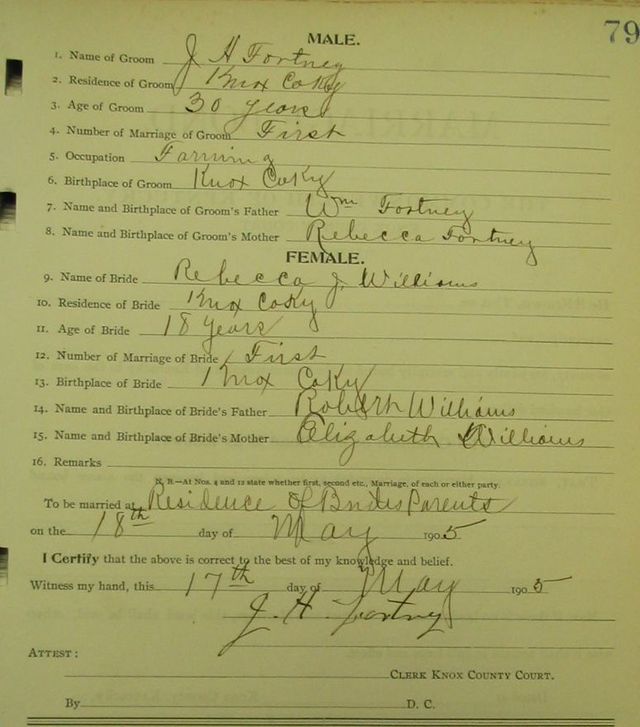 79
MALE.
1. Name of Groom J H Fortney
2. Residence of Groom Knox Co Ky
3. Age of Groom 30 years
4. Number of Marriage of Groom First
5. Occupation Farming
6. Birthplace of Groom Knox Co Ky
7. Name and Birthplace of Groom's Father Wm Fortney
8. Name and Birthplace of Groom's Mother Rebecca Fortney
FEMALE.
9. Name of Bride Rebecca J. Williams
10. Residence of Bride Knox Co Ky
11. Age of Bride 18 years
12. Number of Marriage of Bride First
13. Birthplace of Bride Knox Co Ky
14. Name and Birthplace of Bride's Father Robert Williams
15. Name and Birthplace of Bride's Mother Elizabeth Williams
16. Remarks
N. B.—At Nos. 4 and 12 state whether first, second etc., Marriage, of each or either party.
To be married at Residence of Brides Parents
on the 18th day of May 1905
I Certify that the above is correct to the best of my knowledge and belief.
Witness my hand, this 17th day of May 1905
J. H. Fortney
ATTEST:
CLERK KNOX COUNTY COURT.
By D. C.